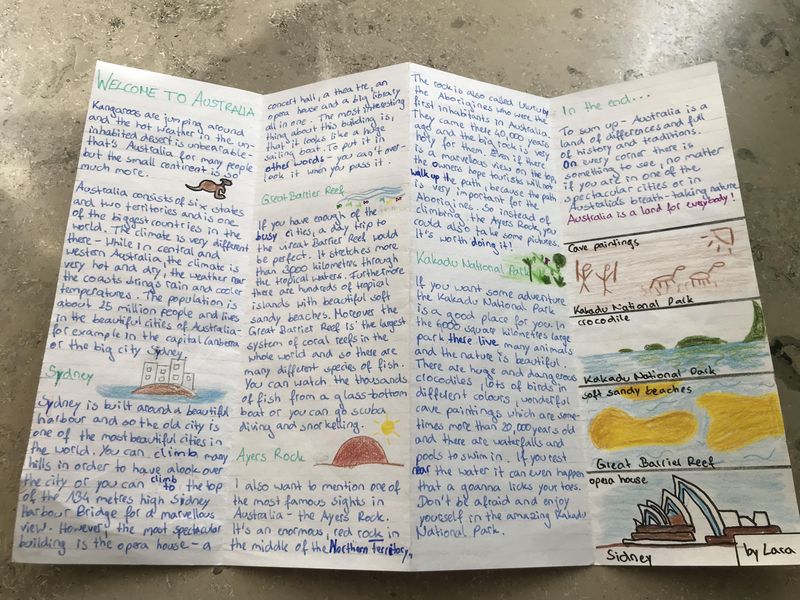 WELCOME TO AUSTRALIA
Kangaroos are jumping around
and the hot weather in the un-
inhabited desert is unbearable-
that's Australia for many people
but the small continent is so
much more.
Australia consists of six states
and two territories and is one
of the biggest countries in the
world. The climate is very different
there - While in central and
western Australia, the climate is
very hot and dry, the weather near
the coasts brings rain and cooler
temperatures. The population is
about 25 million people and lives
in the beautiful cities of Australia-
for example in the capital Canberra
or the big city Sydney.
Sydney
Sydney is built around a beautiful
harbour and so the old city is
one of the most beautiful cities in
the world. You can climb many
hills in order to have a look over
the city or you can climb to the top
of the 134 metres high Sidney
Harbour Bridge for a marvellous
view. However, the most spectacular
building is the opera house - a
concert hall, a theatre, an
opera house and a big library
all in one. The most interesting
thing about this building is,
that it looks like a huge
sailing boat. To put it in
other words - you can't over-
look it when you pass it.
Great Barrier Reef
If you have enough of the
busy cities, a day trip to
the Great Barrier Reef would
be perfect. It stretches more
than 3000 kilometres through
the tropical waters. Furthermore
there are hundreds of tropical
islands with beautiful soft
sandy beaches. Moreover the
Great Barrier Reef is the largest
system of coral reefs in the
whole world and so there are
many different species of fish.
You can watch the thousands
of fish from a glass-bottom
boat or you can go scuba
diving and snorkelling.
Ayers Rock
I also want to mention one of
the most famous sights in
Australia - the Ayers Rock.
It's an enormous, red rock in
the middle of the Northern territory.
The rock is also called Uluru by
the Aborigines who were the
first inhabitants in Australia.
They came there 40,000 years
ago and the big rock is very
holy for them. Even if there
is a marvellous view on the top,
the owners hope tourists will not
walk up the path, because the path
is very important for the
Aborigines. So instead of
climbing the Ayers Rock, you
could also take some pictures.
It's worth doing it!
Kakadu National Park
If you want some adventure
the Kakadu National Park
is a good place for you. In
the 6000 square kilometres large
park there live many animals
and the nature is beautiful.
There are huge and dangerous
crocodiles, lots of birds in
different colours, wonderful
cave paintings which are some-
times more than 20,000 years old
and there are waterfalls and
pools to swim in. If you rest
near the water it can even happen
that a goanna licks your toes.
Don't be afraid and enjoy
yourself in the amazing Kakadu
National Park.
In the end...
To sum up - Australia is a
land of differences and full
of history and traditions.
On every corner there is
something to see, no matter
if you are in one of the
spectacular cities or in
Australia's breath-taking nature.
Australia is a land for everybody!
Cave paintings
Kakadu National Park
crocodile
Kakadu National Park
soft sandy beaches
Great Barrier Reef
opera house
Sidney
by Lara